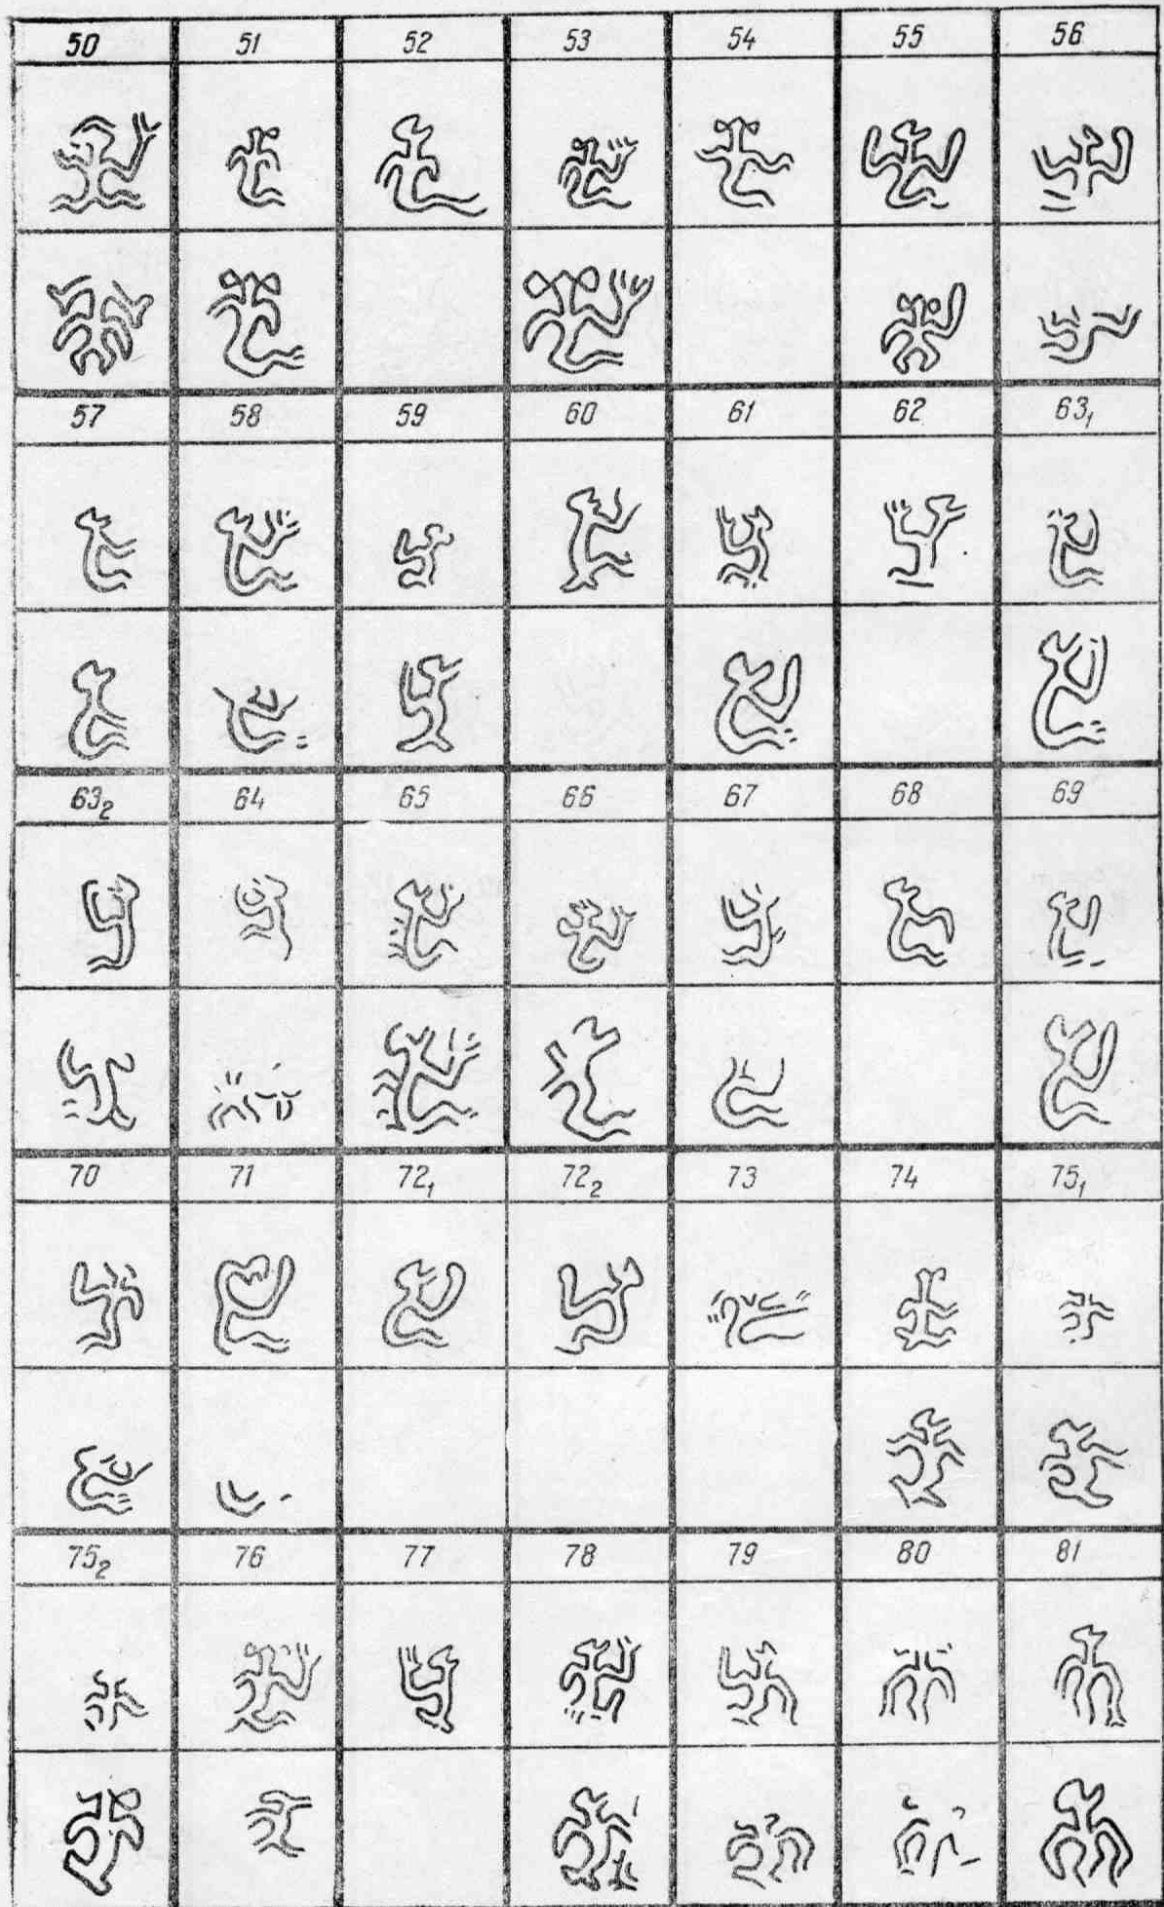 50 51 52 53 54 55 56
57 58 59 60 61 62 63₁
63₂ 64 65 66 67 68 69
70 71 72₁ 72₂ 73 74 75₁
75₂ 76 77 78 79 80 81